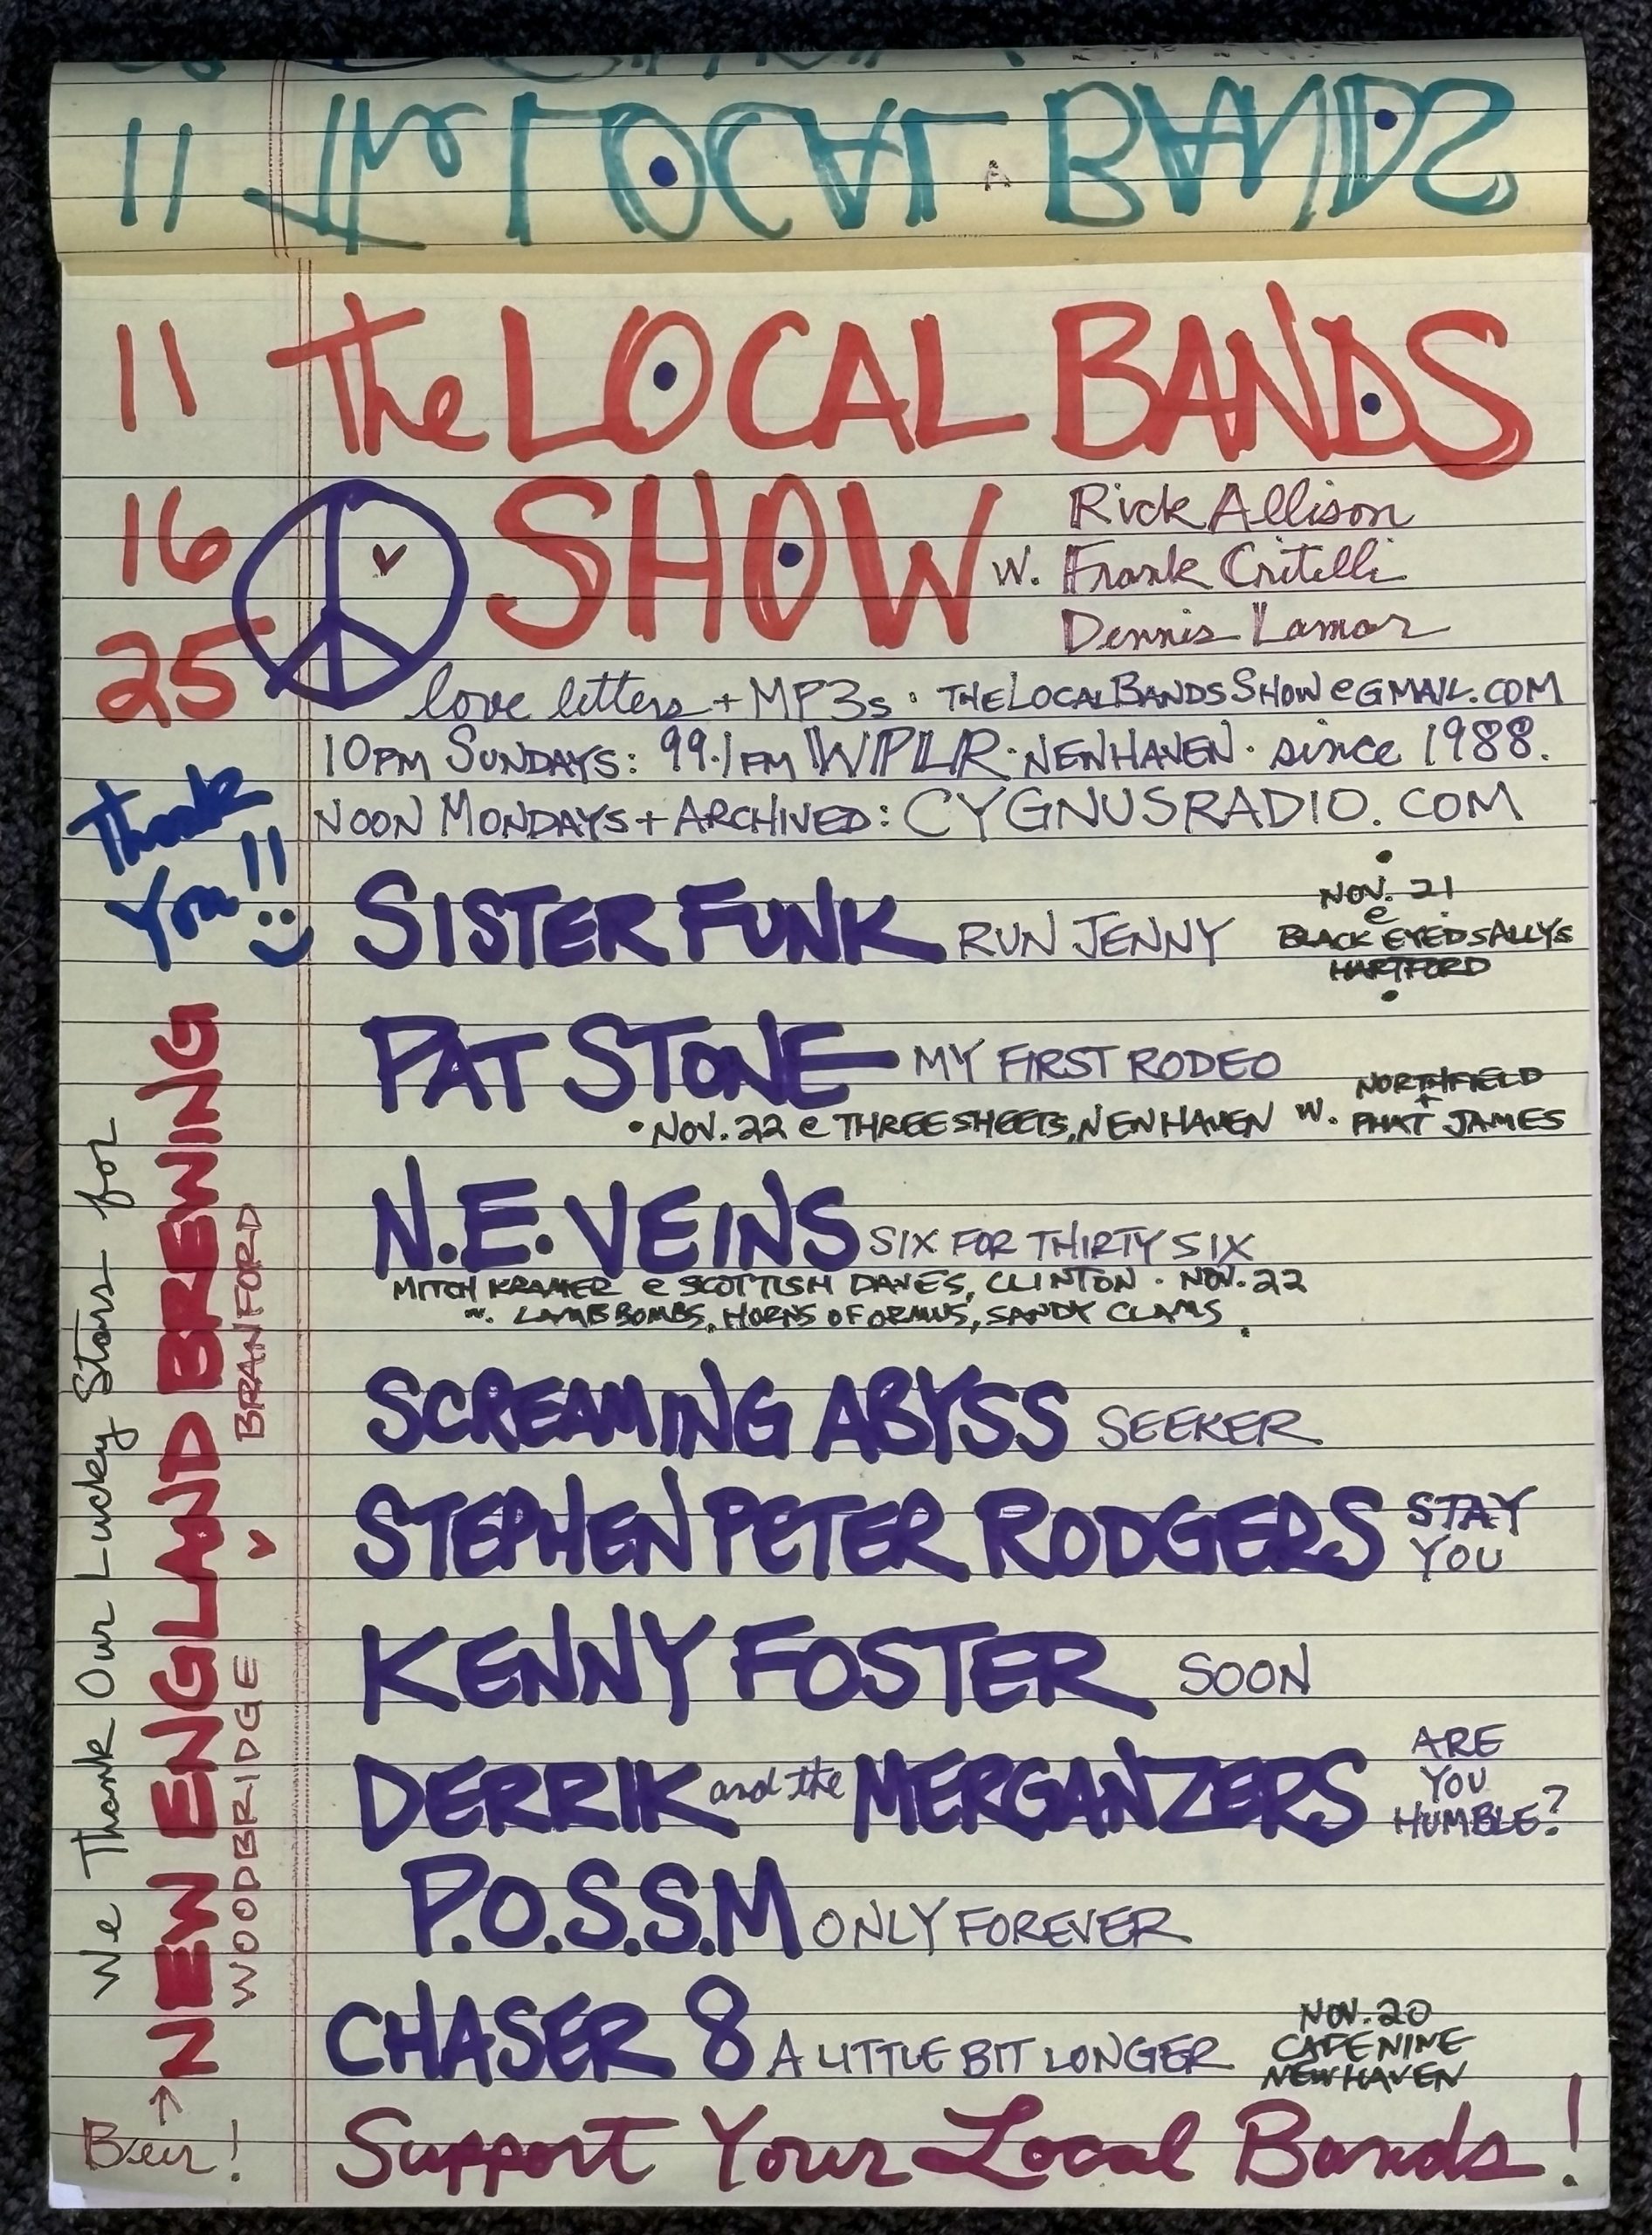 11 The LOCAL BANDS
11 The LOCAL BANDS
16 SHOW w. Rick Allison
Frank Critelli
Dennis Lamar
25
love letters + MP3s · THELOCALBANDSSHOW@GMAIL.COM
10PM SUNDAYS: 99.1FM WPLR · NEW HAVEN · since 1988.
NOON MONDAYS + ARCHIVED: CYGNUSRADIO.COM
Thank
You!!
SISTER FUNK RUN JENNY
NOV. 21
@
BLACK EYED SALLYS
HARTFORD
PAT STONE MY FIRST RODEO
• NOV. 22 @ THREE SHEETS, NEW HAVEN w. NORTHFIELD
+
PHAT JAMES
N.E. VEINS SIX FOR THIRTY SIX
MITCH KRAMER @ SCOTTISH DAVES, CLINTON · NOV. 22
w. LAMB BOMBS, HORNS OF ORMUS, SANDY CLAMS
SCREAMING ABYSS SEEKER
STEPHEN PETER RODGERS STAY
YOU
KENNY FOSTER SOON
DERRIK and the MERGANZERS ARE
YOU
HUMBLE?
P.O.S.S.M ONLY FOREVER
CHASER 8 A LITTLE BIT LONGER
NOV. 20
CAFE NINE
NEW HAVEN
Support Your Local Bands!
We Thank Our Lucky Stars for
NEW ENGLAND BREWING
WOODBRIDGE BRANFORD
Beer!